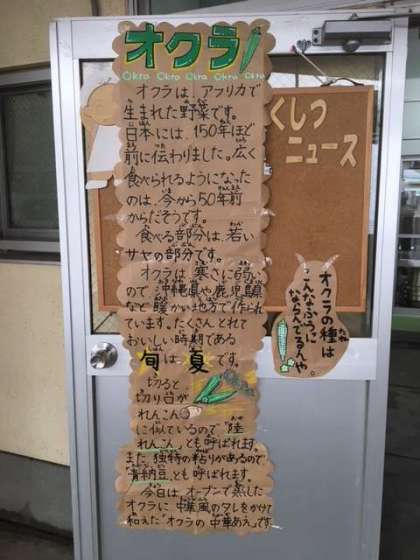 オクラ！
Okra Okra Okra Okra Okra
オクラは、アフリカで
生まれた野菜です。
日本には、150年ほど
前に伝わりました。広く
食べられるようになった
のは、今から50年前
からだそうです。
食べる部分は、若い
サヤの部分です。
オクラは寒さに弱い
ので沖縄県や鹿児島県
など暖かい地方で作られ
ています。たくさんとれて
おいしい時期である
旬は夏です。
切ると
切り口が
れんこん
に似ているので“陸
れんこん”とも呼ばれます。
また、独特の粘りがあるので
“青納豆”とも呼ばれます。
今日は、オーブンで蒸した
オクラに中華風のタレをかけて
和えた“オクラの中華あえ”です
くしつ
ニュース
オクラの種は
こんなふうに
ならんでるんや。